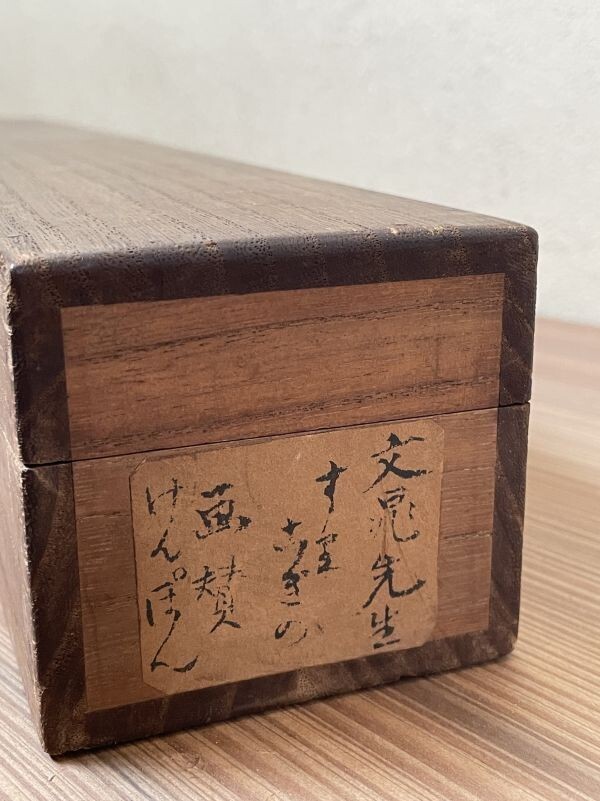 文晁先生
す里
古ぎの
画賛
けんぽん